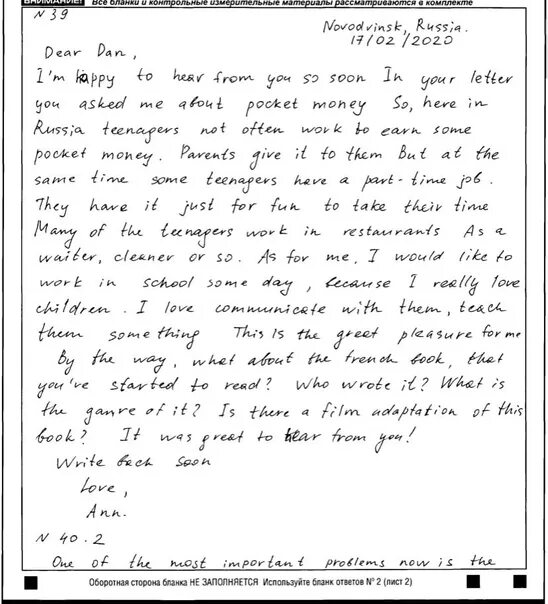 ВНИМАНИЕ! Все бланки и контрольные измерительные материалы рассматриваются в комплекте
N 39
Novodvinsk, Russia.
17/02/2020
Dear Dan,
I'm happy to hear from you so soon In your letter
you asked me about pocket money So, here in
Russia teenagers not often work to earn some
pocket money. Parents give it to them But at the
same time some teenagers have a part-time job.
They have it just for fun to take their time
Many of the teenagers work in restaurants As a
waiter, cleaner or so. As for me, I would like to
work in school some day, because I really love
children. I love communicate with them, teach
them something This is the great pleasure for me
By the way, what about the french book, that
you've started to read? Who wrote it? What is
the ganre of it? Is there a film adaptation of this
book? It was great to hear from you!
Write back soon
Love,
Ann.
N 40.2
One of the most important problems now is the
Оборотная сторона бланка НЕ ЗАПОЛНЯЕТСЯ Используйте бланк ответов № 2 (лист 2)